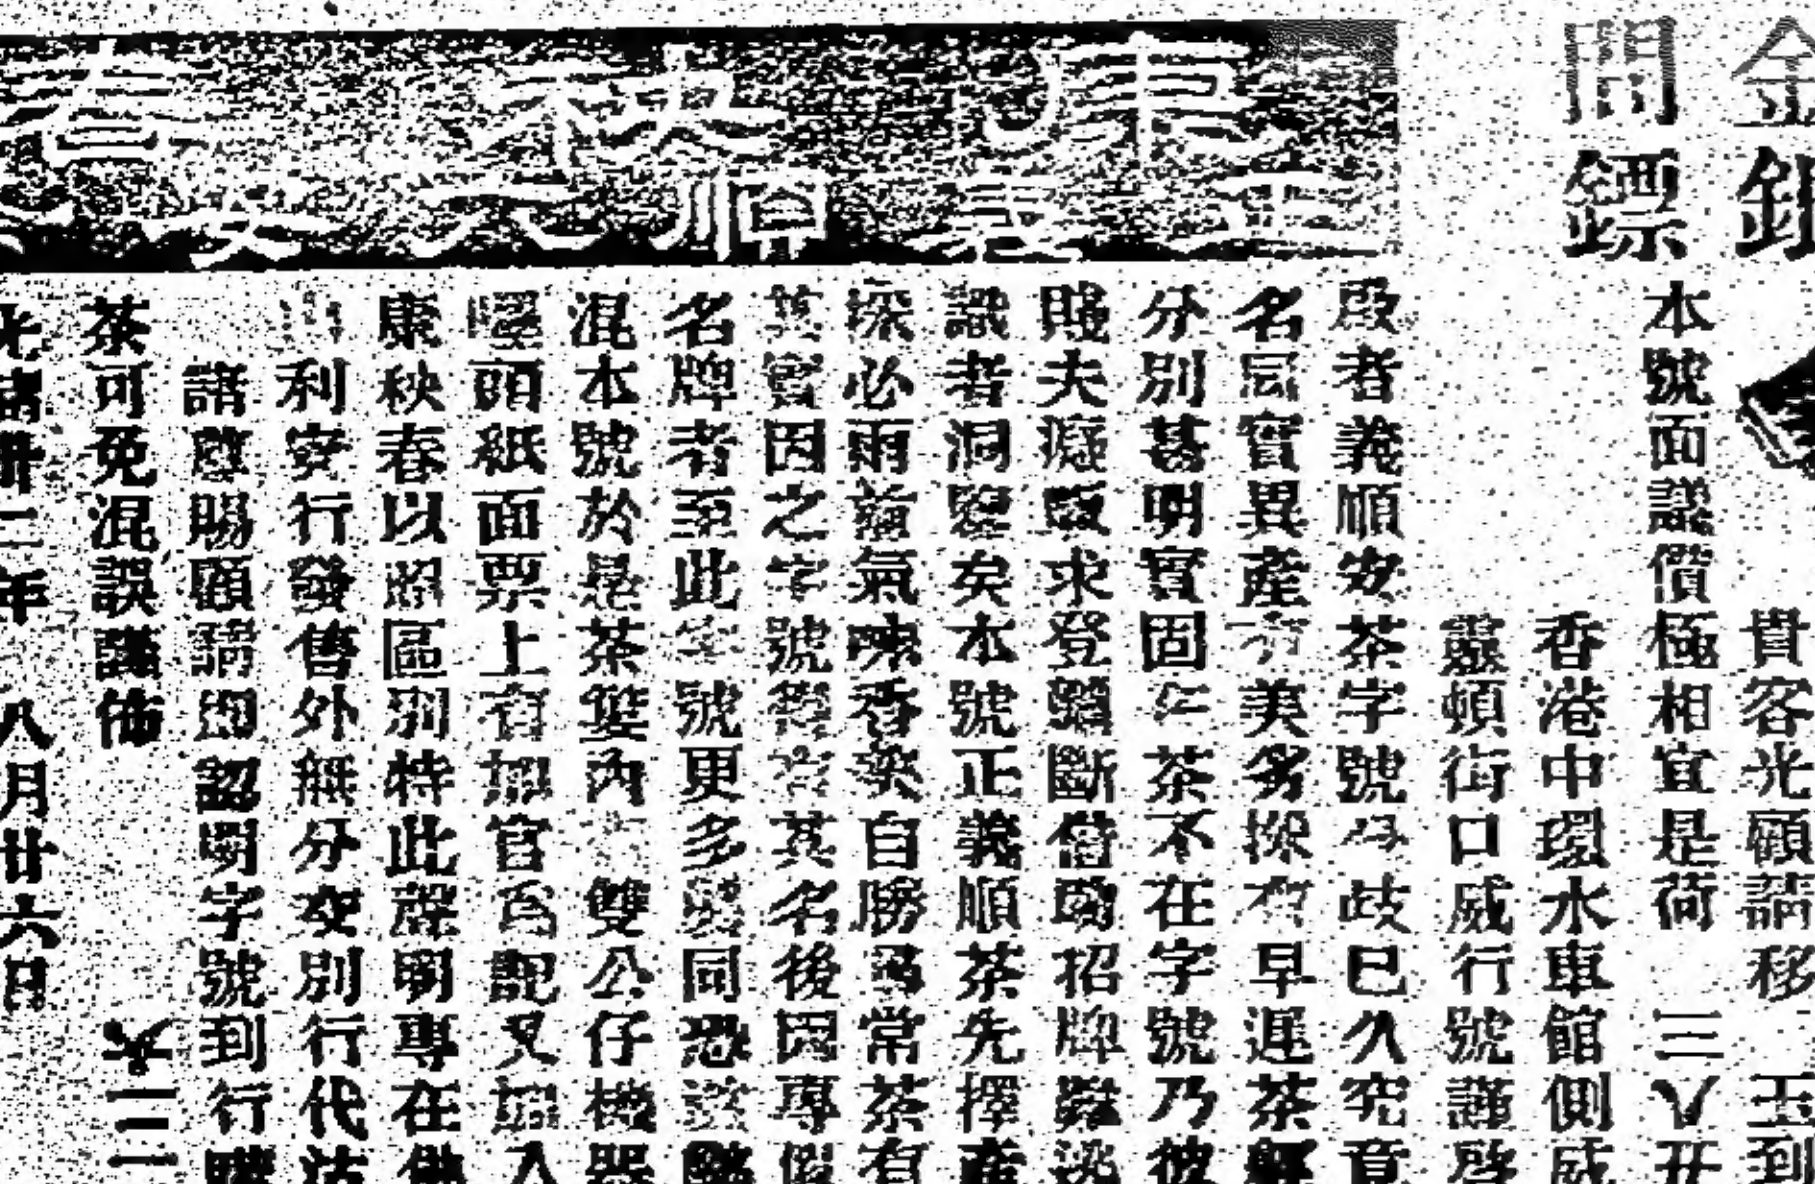 金銀
問鏢
貴客光顧請移玉到
本號面議價極相宜是荷 三八廿
香港中環水車館側威
靈頓街口威行號謹啓
康秧春
正義順六安
啟者義順安茶字號分歧已久究竟
名同實異產有美劣採有早遲茶經
分別甚明實固仁茶不在字號乃彼
賤夫癡販求登壟斷僭竊招牌
識者洞鑒矣本號正義順茶先擇產
採必雨前氣味香美自勝尋常茶有
其實因之字號 其名後因專假
名牌者至此字號更多 同恐
混本號於是茶簍內 雙公仔機器
頭紙面票上有加官為記又加入
康秧春以照區別特此聲明專在佛
利安行發售外無分交別行代沽
諸尊賜顧請即認明字號到行購
茶可免混誤謹佈
光緒卅二年 八月廿六日